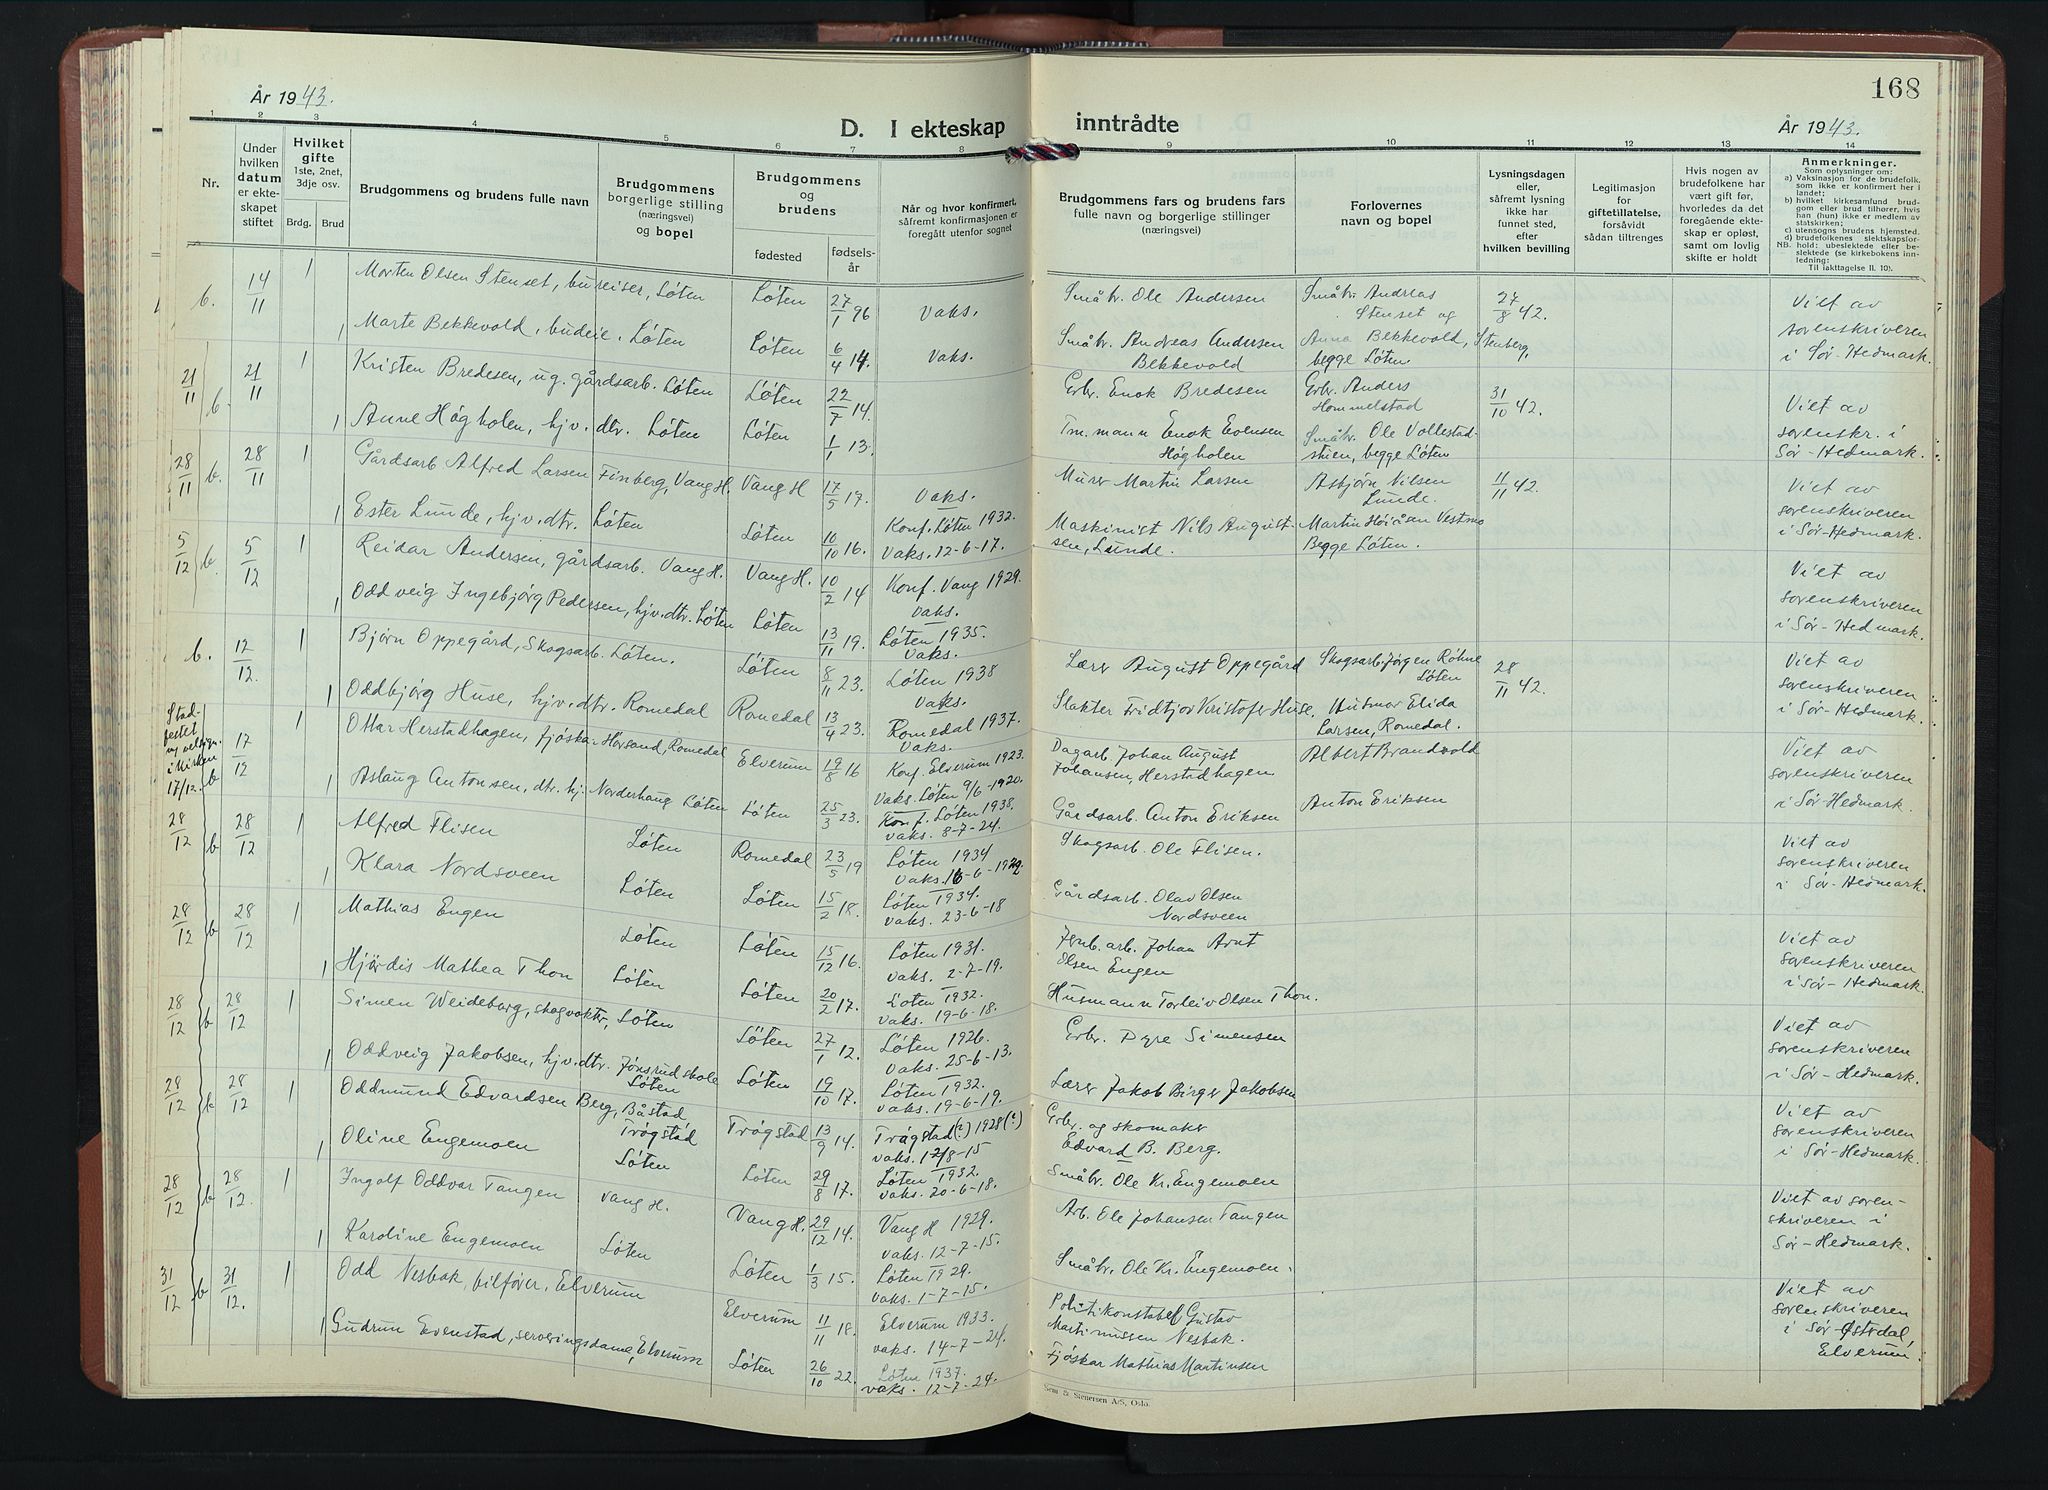 År 1943.
D. I ekteskap
inntrådte
168
År 1943.
1 2 3 4 5 6 7 8 9 10 11 12 13 14
Nr.
Under hvilken datum er ekteskapet stiftet
Hvilket gifte 1ste, 2net, 3dje osv.
Brdg. Brud
Brudgommens og brudens fulle navn
Brudgommens borgerlige stilling (næringsvei) og bopel
Brudgommens og brudens
fødested
fødselsår
Når og hvor konfirmert, såfremt konfirmasjonen er foregått utenfor sognet
Brudgommens fars og brudens fars fulle navn og borgerlige stillinger (næringsvei)
Forlovernes navn og bopel
Lysningsdagen eller, såfremt lysning ikke har funnet sted, efter hvilken bevilling
Legitimasjon for giftetillatelse, forsåvidt sådan tiltrenges
Hvis nogen av brudefolkene har vært gift før, hvorledes da det foregående ekteskap er opløst, samt om lovlig skifte er holdt
Anmerkninger.
Som oplysninger om:
a) Vaksinasjon for de brudefolk, som ikke er konfirmert her i landet;
b) hvilket kirkesamfund brudgom eller brud tilhører, hvis han (hun) ikke er medlem av statskirken;
c) utensogns brudens hjemsted.
d) brudefolkenes slektskapsforhold: ubeslektede eller beslektede (se kirkebokens innledning:
NB.
Til iakttagelse II. 10).
b. 14/11 1 Morten Olsen Stenset, bureiser, Løten Løten 27/1 96 Vaks. Småbr. Ole Andersen Småbr. Andreas Stenset og 27/8 42. Viet av sorenskriveren i Sør-Hedmark.
1 Marte Bekkevold, budeie, Løten Løten 6/4 14. Vaks. Småbr. Andreas Andersen Bekkevold Anna Bekkevold, Stenberg, begge Løten
21/11 b. 21/11 1 Kristen Bredesen, ug. gårdsarb. Løten Løten 22/7 14. Gbr. Enok Bredesen Gbr. Anders Hommelstad 31/10 42. Viet av sorenskr. i Sør-Hedmark.
1 Anne Høgholen, hjv. dtr. Løten Løten 1/1 13. Tm. mann Enok Evensen Høgholen Småbr. Ole Vollestadstuen, begge Løten
28/11 b. 28/11 1 Gårdsarb Alfred Larsen Finberg, Vang H. Vang H 17/5 17. Vaks. Murer Martin Larsen Asbjørn Nilsen Lunde. 11/11 42. Viet av sorenskriveren i Sør-Hedmark.
1 Ester Lunde, hjv. dtr. Løten Løten 10/10 16. Konf. Løten 1932. Vaks. 12-6-17. Maskinist Nils Augustsen, Lunde. Martin Begge Løten.
5/12 b. 5/12 1 Reidar Andersen, gårdsarb. Vang H. Vang H. 10/2 14 Konf. Vang 1929. Vaks. Viet av sorenskriveren i Sør-Hedmark.
1 Oddveig Ingebjørg Pedersen, hjv. dtr. Løten Løten 13/11 19. Løten 1935. Vaks.
b. 12/12. 1 Bjørn Oppegård, Skogsarb. Løten. Løten 8/11 23. Løten 1938 Vaks. Lærer August Oppegård Skogsarb. Jørgen Røhne Løten 28/11 42. Viet av sorenskriveren i Sør-Hedmark.
1 Oddbjørg Huse, hjv. dtr. Romedal Romedal 13/4 23. Romedal 1937. Vaks. Slakter Fridtjov Kristofer Huse, Husmor Elida Larsen, Romedal.
Stadfestet og velsign. i kirken 17/12. b 17/12 1 Ottar Herstadhagen, fjøskar Horsand, Romedal Elverum 19/8 16 Konf. Elverum 1923. Vaks. Løten 9/6-1920. Dagarb. Johan August Johansen, Herstadhagen Albert Brandvold Viet av sorenskriveren i Sør-Hedmark.
1 Aslaug Antonsen, dtr. hj. Norderhaug Løten Løten 25/3 23. Konf. Løten 1938. vaks. 8-7-24. Gårdsarb. Anton Eriksen Anton Eriksen
28/12 b 28/12 1 Alfred Flisen Løten Romedal 23/5 19 Løten 1934 Vaks. 16-6-1922 Skogsarb. Ole Flisen. Viet av sorenskriveren i Sør-Hedmark.
1 Klara Nordsveen Løten Løten 15/2 18. Løten 1934. Vaks. 23-6-18 Gårdsarb. Olav Olsen Nordsveen
28/12 b 28/12 1 Mathias Engen Løten Løten 15/12 16. Løten 1931. vaks. 2-7-19. Jenb. arb. Johan Arnt Olsen Engen Viet av sorenskriveren i Sør-Hedmark
1 Hjørdis Mathea Thon Løten Løten 20/2 17. Løten 1932. vaks. 19-6-18. Husmann Torleiv Olsen Thon.
28/12 b 28/12 1 Simen Weideborg, skogvokter, Løten Løten 27/1 12. Løten 1926. Vaks. 25-6-13. Gbr. Pyre Simensen Viet av sorenskriveren i Sør-Hedmark.
1 Oddveig Jakobsen, hjv. dtr. Jønsrud skole Løten Løten 19/10 17. Løten 1932. Vaks. 19-6-19. Lærer Jakob Birger Jakobsen
28/12 b 28/12 1 Oddmund Edvardsen Berg, Båstad, Trøgstad Trøgstad 13/9 14. Trøgstad(?) 1928(?) vaks. 17/8-15 Gbr. og skomaker Edvard B. Berg. Viet av sorenskriveren i Sør-Hedmark.
1 Oline Engemoen Løten Løten 29/8 17. Løten 1932. vaks. 20-6-18. Småbr. Ole Kr. Engemoen
28/12 b 28/12. 1 Ingolf Oddvar Tangen Vang H. Vang H. 29/12 14. Vang H 1929. vaks. 12-7-15. Arb. Ole Johansen Tangen Viet av sorenskriveren i Sør-Hedmark.
1 Karoline Engemoen Løten Løten 1/3 15. Løten 1929. vaks. 1-7-15. Småbr. Ole Kr. Engemoen.
31/12 b 31/12. 1 Odd Nesbak, bilfører, Elverum Elverum 11/11 18. Elverum 1933. vaks. 14-7-24. Politikonstabel Gustav Martinussen Nesbak. Viet av sorenskriveren i Sør-Østerdal, Elverum.
1 Gudrun Evenstad, serveringsdame, Elverum Løten 26/10 22. Løten 1937. vaks. 12-7-24. Fjøskar Mathias Martinsen
Sem & Stenersen A/S, Oslo.